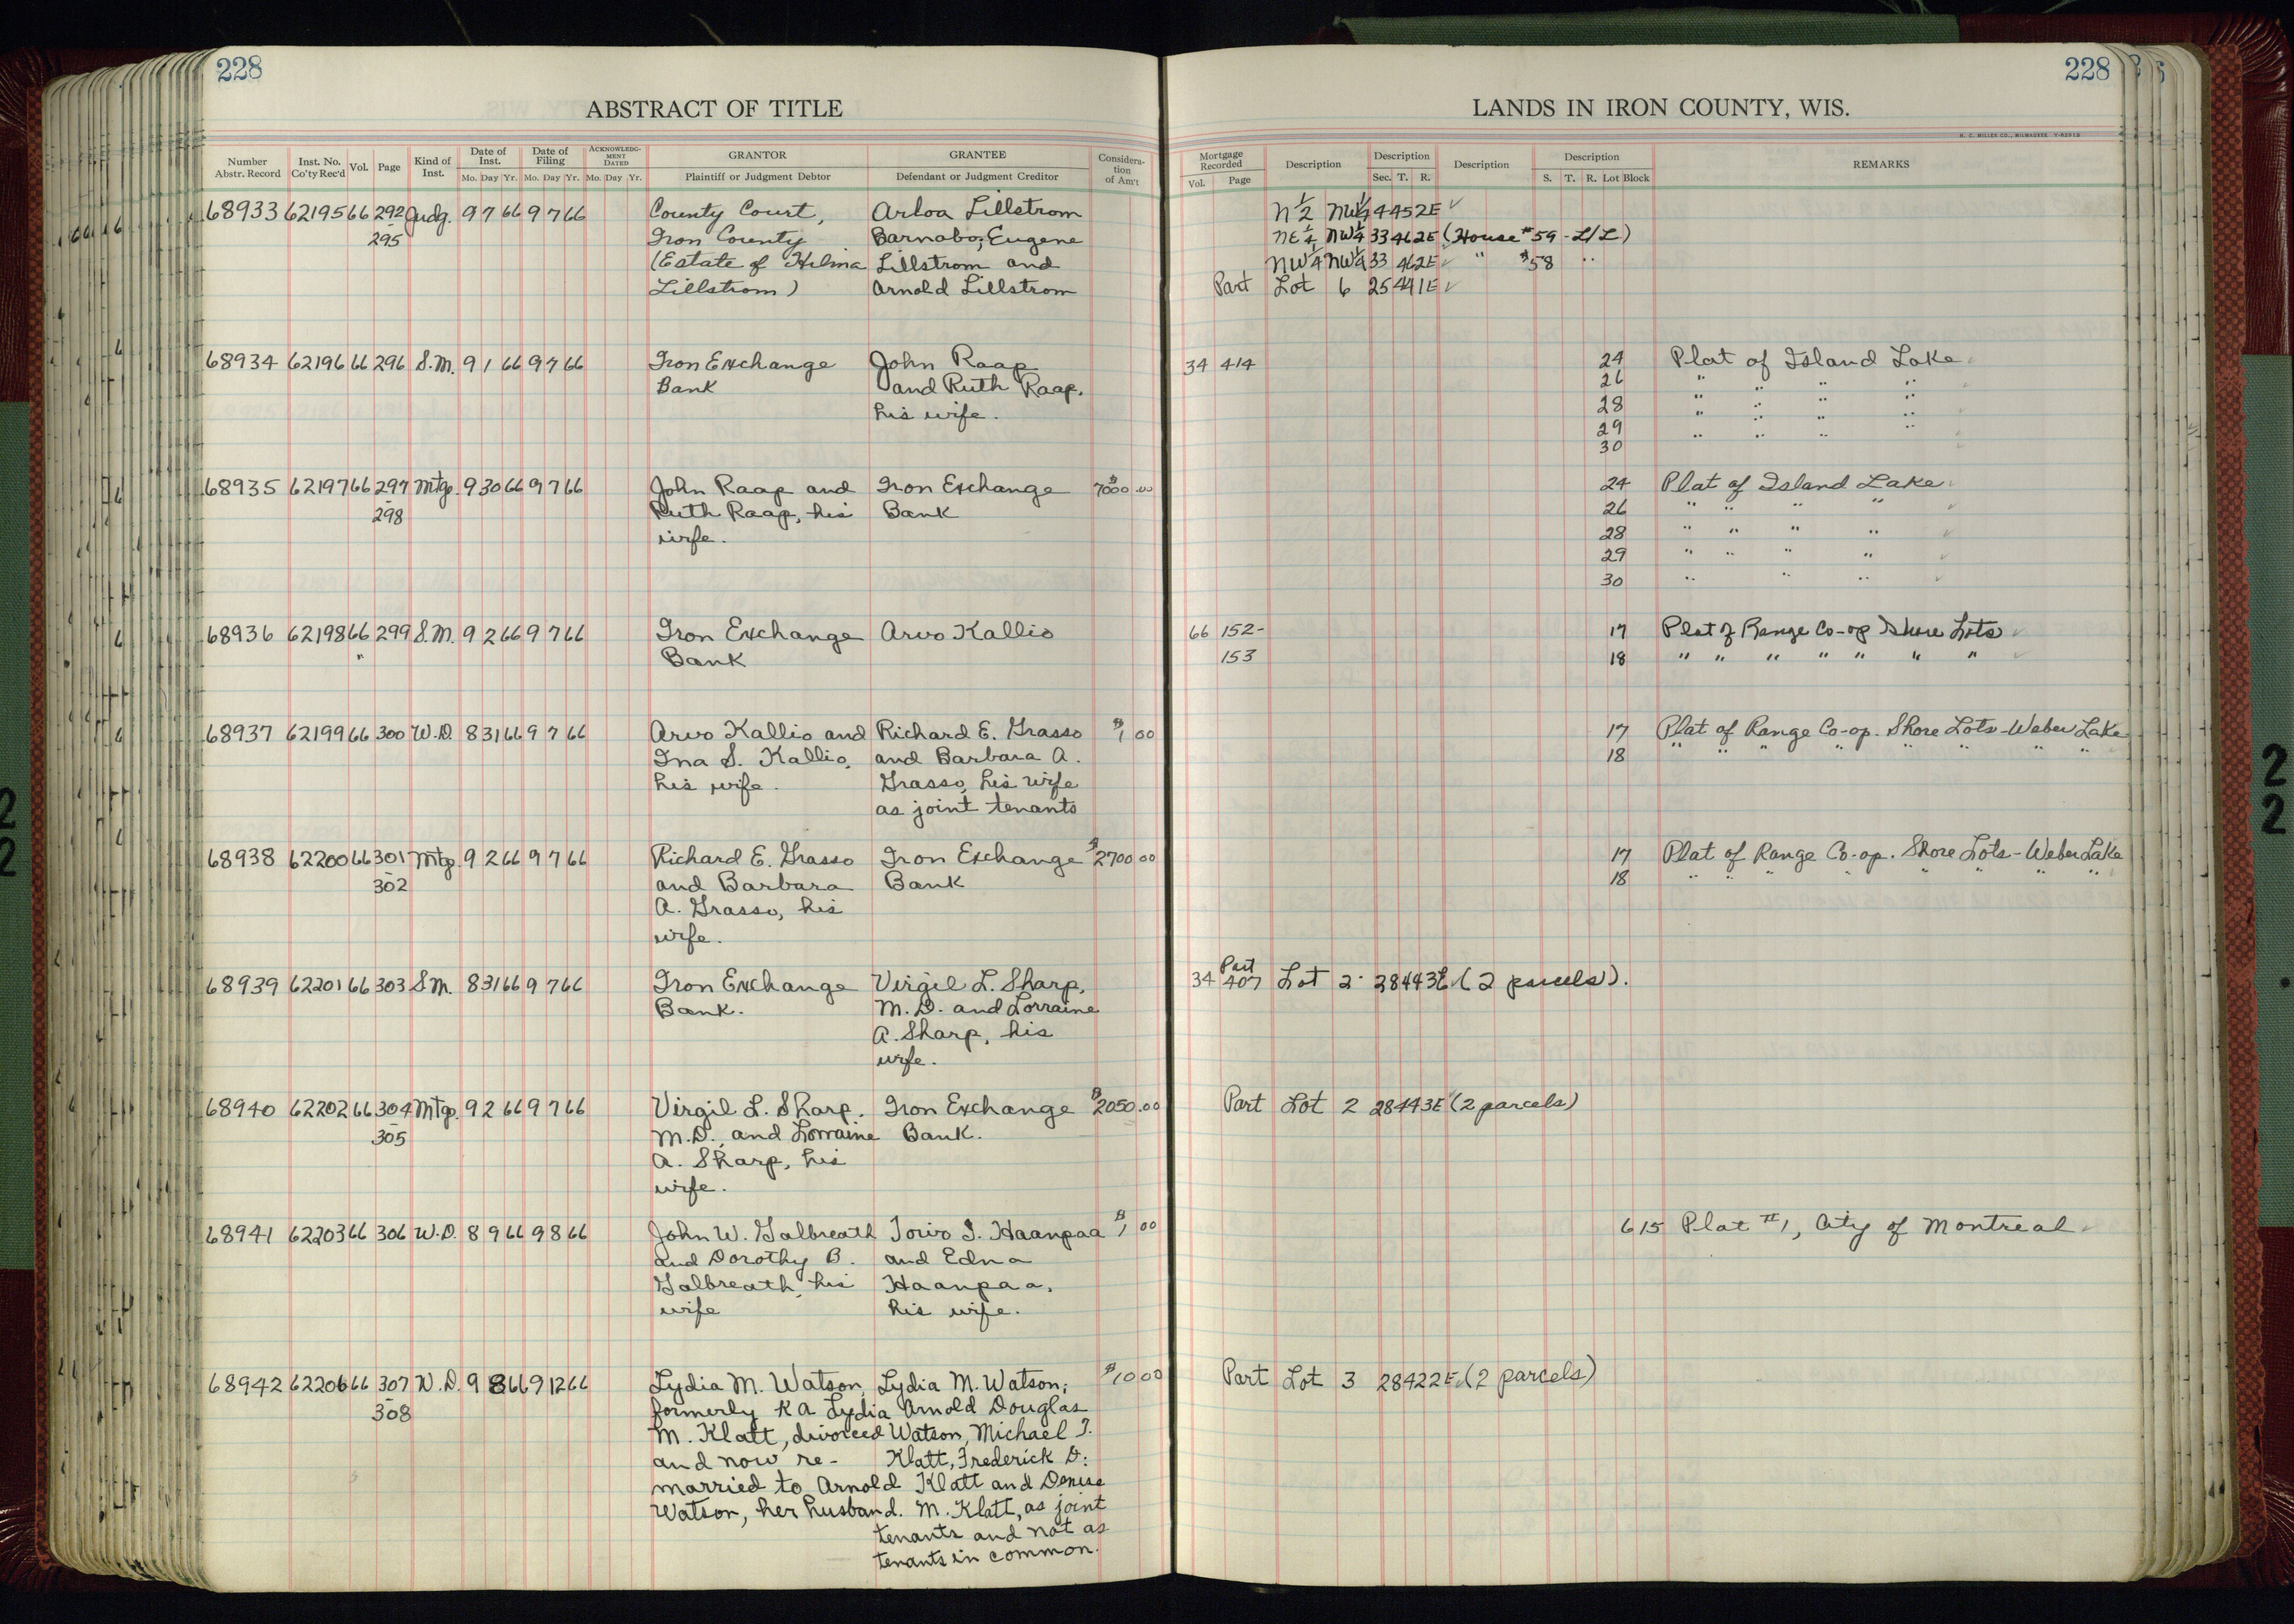 228
228
ABSTRACT OF TITLE
LANDS IN IRON COUNTY, WIS.
H. C. MILLER CO., MILWAUKEE
Number Abstr. Record | Inst. No. Co'ty Rec'd | Vol. | Page | Kind of Inst. | Date of Inst. Mo. Day Yr. | Date of Filing Mo. Day Yr. | ACKNOWLEDGMENT DATED Mo. Day Yr. | GRANTOR Plaintiff or Judgment Debtor | GRANTEE Defendant or Judgment Creditor | Consideration of Am't
Mortgage Recorded Vol. Page | Description | Description Sec. T. R. | Description | Description S. T. R. Lot Block | REMARKS
68933 62195 66 292 Judg. 9 7 66 9 7 66 County Court, Arloa Lillstrom N½ NW¼ 4 45 2E
295 Iron County Barnabo, Eugene NE¼ NW¼ 33 46 2E (House #59 - L/L)
(Estate of Hilma Lillstrom and NW¼ NW¼ 33 46 2E " #58 "
Lillstrom) Arnold Lillstrom Part Lot 6 25 44 1E
68934 62196 66 296 S.M. 9 1 66 9 7 66 Iron Exchange John Raap 34 414 24 Plat of Island Lake
Bank and Ruth Raap, 26 " " " "
his wife. 28 " " " "
29 " " " "
30
68935 62197 66 297 Mtg. 9 30 66 9 7 66 John Raap and Iron Exchange $7000.00 24 Plat of Island Lake
298 Ruth Raap, his Bank 26 " " " "
wife. 28 " " " "
29 " " " "
30 " " "
68936 62198 66 299 S.M. 9 2 66 9 7 66 Iron Exchange Arvo Kallio 66 152- 17 Plat of Range Co-op Shore Lots
" Bank 153 18 " " " " " " "
68937 62199 66 300 W.D. 8 31 66 9 7 66 Arvo Kallio and Richard E. Grasso $1 00 17 Plat of Range Co-op. Shore Lots - Weber Lake
Ina S. Kallio, and Barbara A. 18 " " " " " " " "
his wife. Grasso, his wife
as joint tenants
68938 62200 66 301 Mtg. 9 2 66 9 7 66 Richard E. Grasso Iron Exchange $2700 00 17 Plat of Range Co-op. Shore Lots - Weber Lake
302 and Barbara Bank 18 " " " " " " " "
A. Grasso, his
wife.
68939 62201 66 303 S.M. 8 31 66 9 7 66 Iron Exchange Virgil L. Sharp, 34 407 Part Lot 2 28 44 3E (2 parcels).
Bank. M.D. and Lorraine
A. Sharp, his
wife.
68940 62202 66 304 Mtg. 9 2 66 9 7 66 Virgil L. Sharp, Iron Exchange $2050.00 Part Lot 2 28 44 3E (2 parcels)
305 M.D., and Lorraine Bank.
A. Sharp, his
wife.
68941 62203 66 306 W.D. 8 9 66 9 8 66 John W. Galbreath Toivo I. Haanpaa $1 00 6 15 Plat #1, City of Montreal
and Dorothy B. and Edna
Galbreath, his Haanpaa,
wife his wife.
68942 62206 66 307 W.D. 9 8 66 9 12 66 Lydia M. Watson, Lydia M. Watson, $10 00 Part Lot 3 28 42 2E (2 parcels)
308 formerly K A Lydia Arnold Douglas
M. Klatt, divorced Watson, Michael J.
and now re- Klatt, Frederick D.
married to Arnold Klatt and Denise
Watson, her husband. M. Klatt, as joint
tenants and not as
tenants in common.
22
22